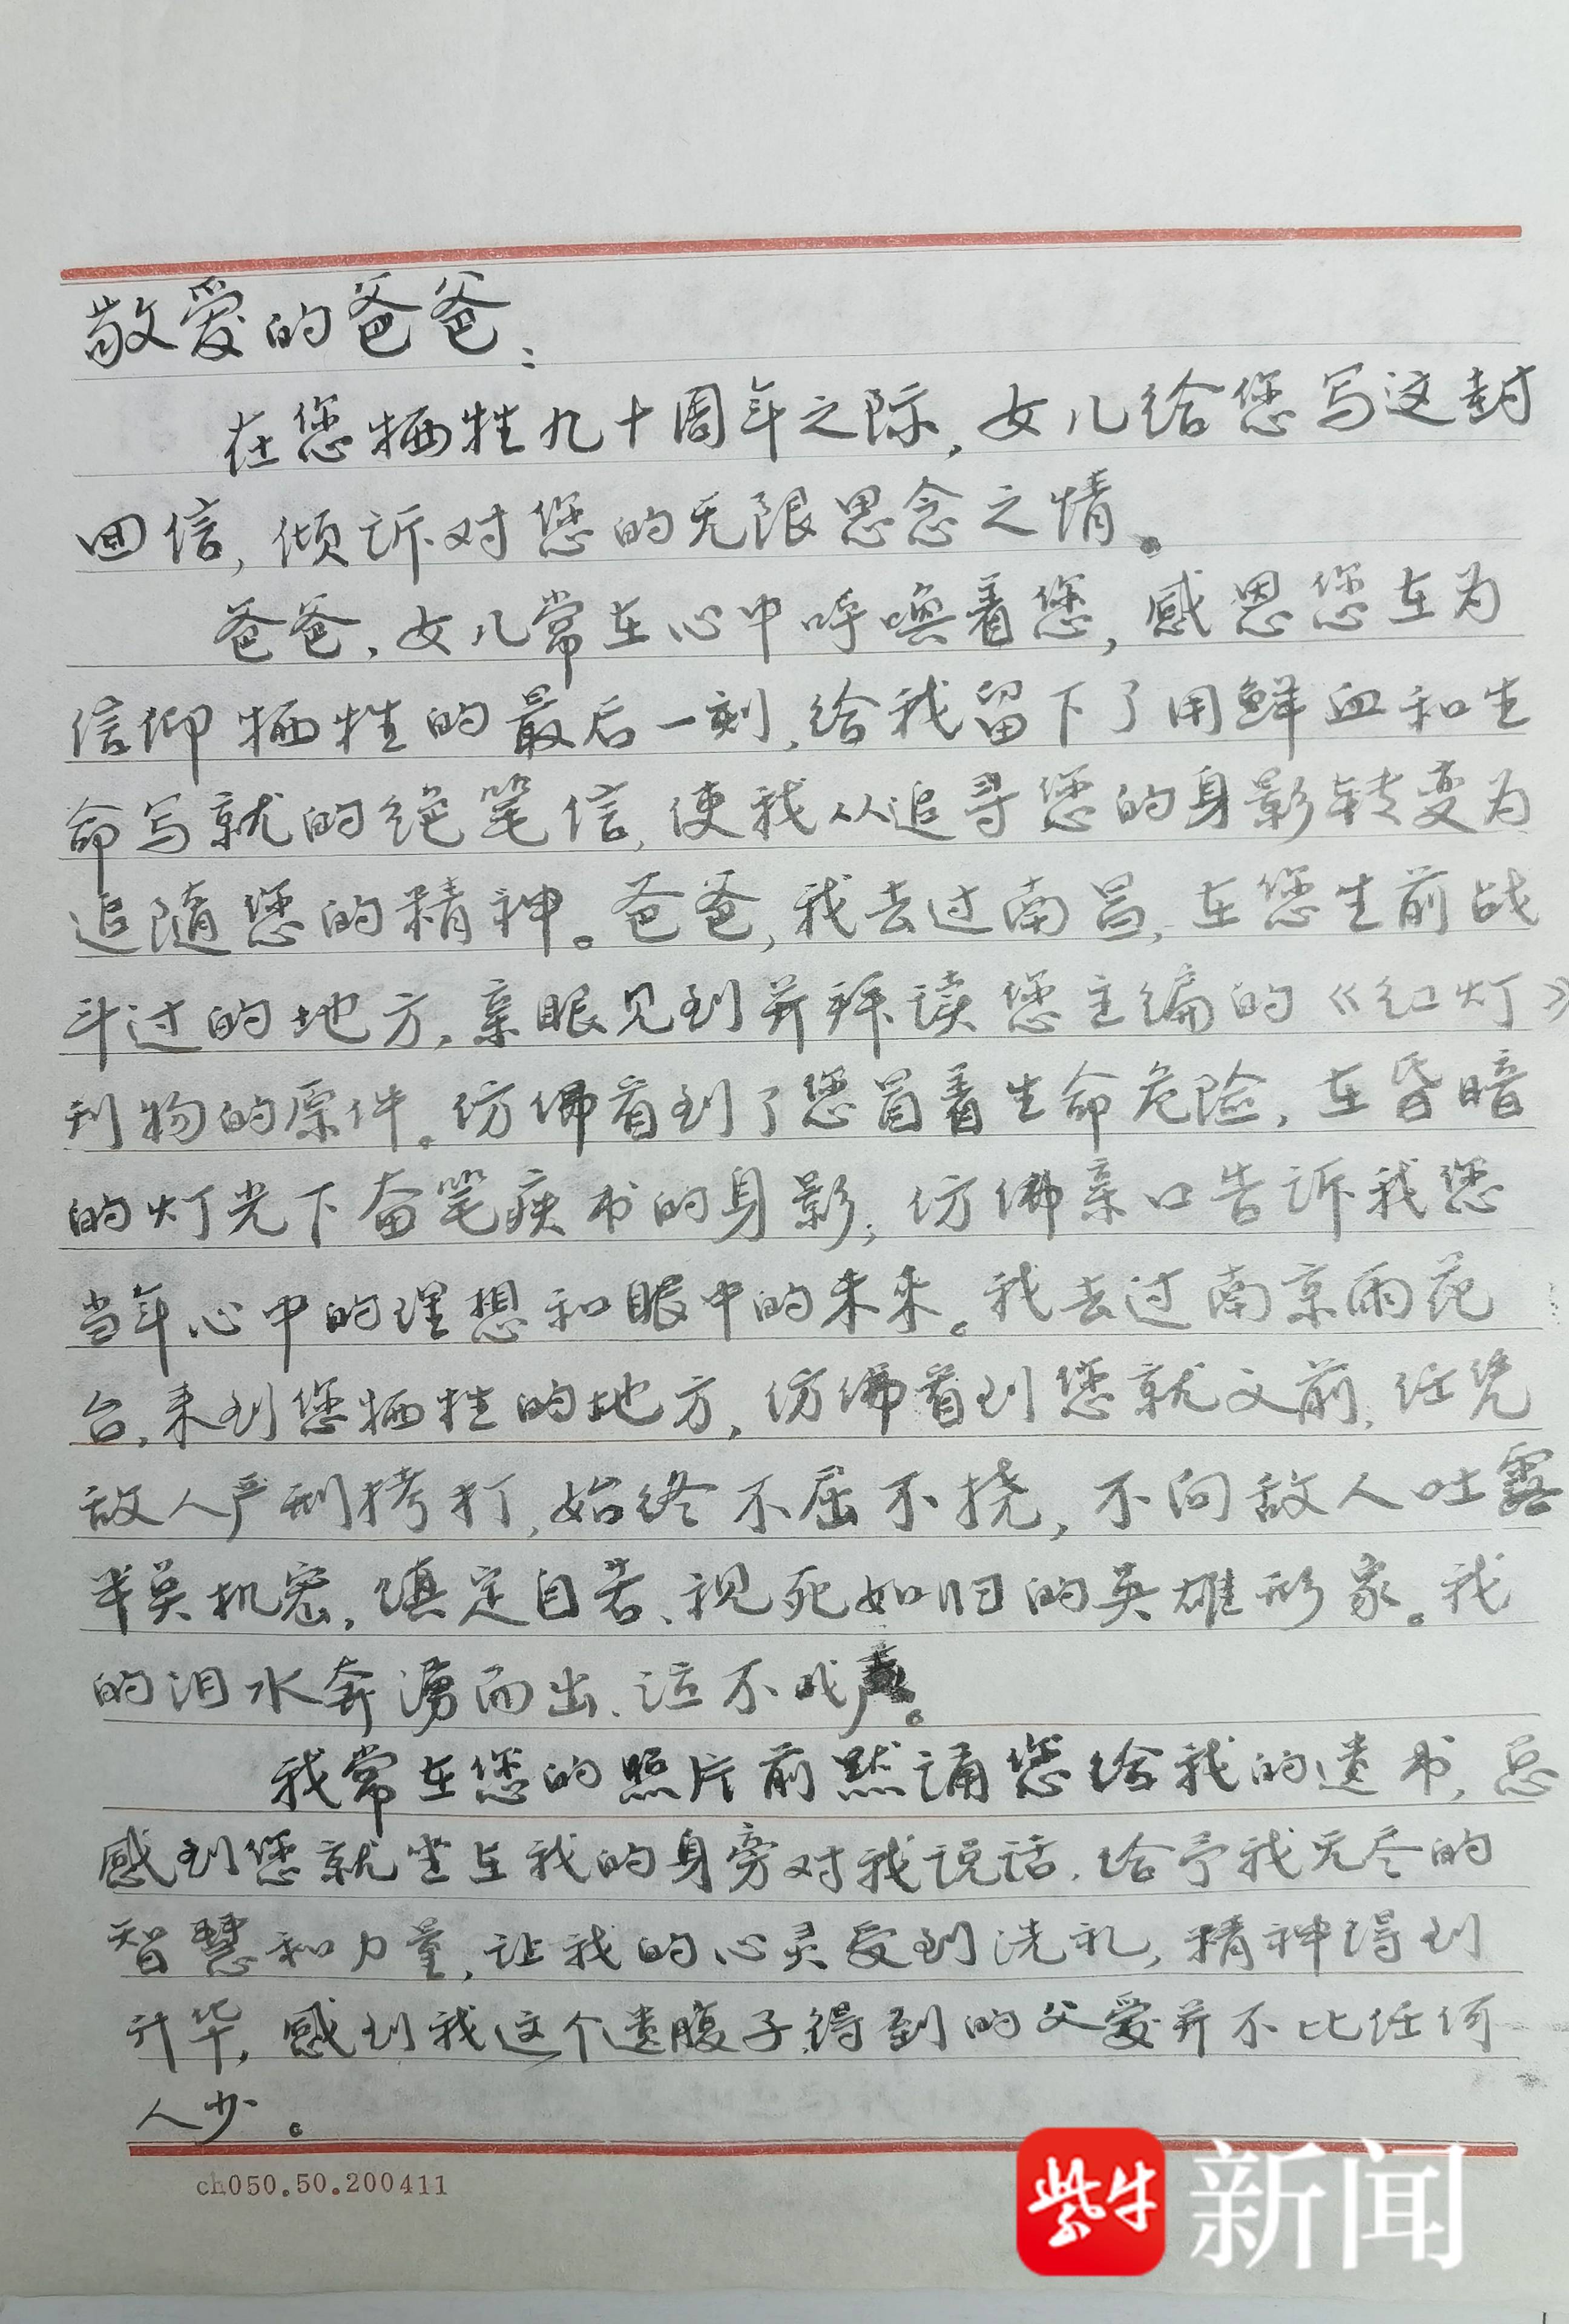 敬爱的爸爸:
在您牺牲九十周年之际,女儿给您写这封
回信,倾诉对您的无限思念之情。
爸爸,女儿常在心中呼唤着您,感恩您在为
信仰牺牲的最后一刻,给我留下了用鲜血和生
命写就的绝笔信,使我从追寻您的身影转变为
追随您的精神。爸爸,我去过南昌,在您生前战
斗过的地方,亲眼见到并拜读您主编的《红灯》
刊物的原件。仿佛看到了您冒着生命危险,在昏暗
的灯光下奋笔疾书的身影;仿佛亲口告诉我您
当年心中的理想和眼中的未来。我去过南京雨花
台,来到您牺牲的地方,仿佛看到您就义前,任凭
敌人严刑拷打,始终不屈不挠,不向敌人吐露
半点机密,镇定自若、视死如归的英雄形象。我
的泪水奔涌而出、泣不成声。
我常在您的照片前默诵您给我的遗书,总
感到您就坐在我的身旁对我说话,给予我无尽的
智慧和力量,让我的心灵受到洗礼,精神得到
升华,感到我这个遗腹子得到的父爱并不比任何
人少。
ch050.50.200411
紫牛
新闻